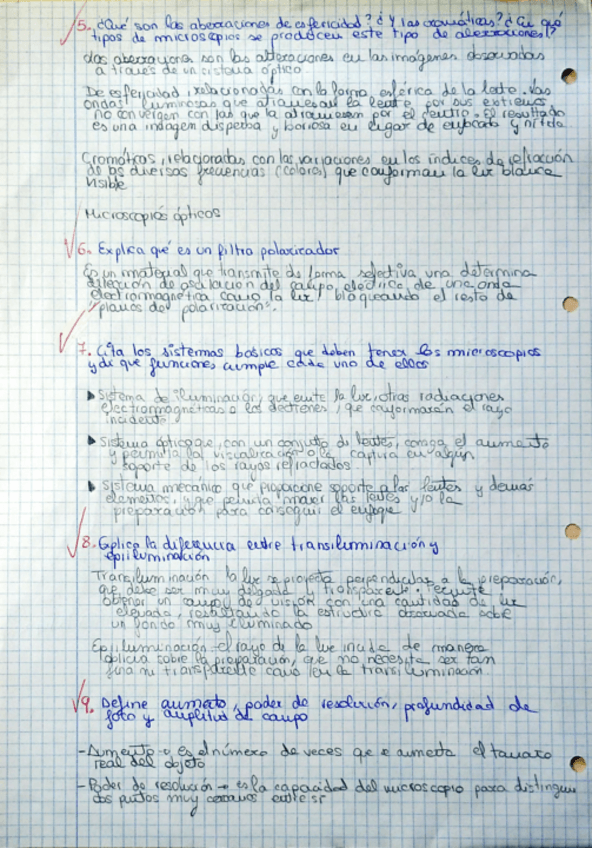 5. ¿Qué son las aberraciones de esfericidad? ¿Y las cromáticas? ¿En qué
tipos de microscopios se producen este tipo de aberraciones?
Las aberraciones son las alteraciones en las imágenes observadas
a través de un sistema óptico
De esfericidad, relacionadas con la forma esférica de la lente. Las
ondas luminosas que atraviesan la lente por sus extremos
no convergen con las que la atraviesan por el centro. El resultado
es una imagen dispersa y borrosa en lugar de enfocada y nítida
Cromáticas, relacionadas con las variaciones en los índices de refracción
de las diversas frecuencias (colores) que conforman la luz blanca
visible
Microscopios ópticos
6. Explica qué es un filtro polarizador
Es un material que transmite de forma selectiva una determina
dirección de oscilación del campo eléctrico de una onda
electromagnética como la luz, bloqueando el resto de
"planos de polarización".
7. Cita los sistemas basicos que deben tener los microscopios
y di que funciones cumple cada uno de ellos
▸ Sistema de iluminación, que emite la luz, otras radiaciones
electromagnéticas o los electrones, que conformarán el rayo
incidente
▸ Sistema óptico que, con un conjunto de lentes, consiga el aumento
y permita la visualización o la captura en algún
soporte de los rayos refractados
▸ Sistema mecánico que proporcione soporte a las lentes y demás
elementos, y que permita mover las lentes y/o la
preparación para conseguir el enfoque
8. Explica la diferencia entre transiluminación y
epiiluminación
Transiluminación la luz se proyecta perpendicular a la preparación,
que debe ser muy delgada y transparente. Permite
obtener un campo de visión con una cantidad de luz
elevada, resaltando la estructura observada sobre
un fondo muy iluminado
Epiiluminación el rayo de la luz incide de manera
oblicua sobre la preparación, que no necesita ser tan
fina ni transparente como en la transiluminación
9. Define aumento, poder de resolución, profundidad de
foto y amplitud de campo
- Aumento → es el número de veces que se aumenta el tamaño
real del objeto
- Poder de resolución → es la capacidad del microscopio para distinguir
dos puntos muy cercanos entre sí